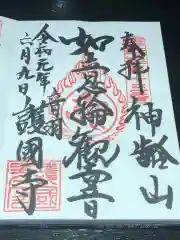 奉拝
神齢山
如意輪観音
令和元年
六月九日
音羽
護國寺